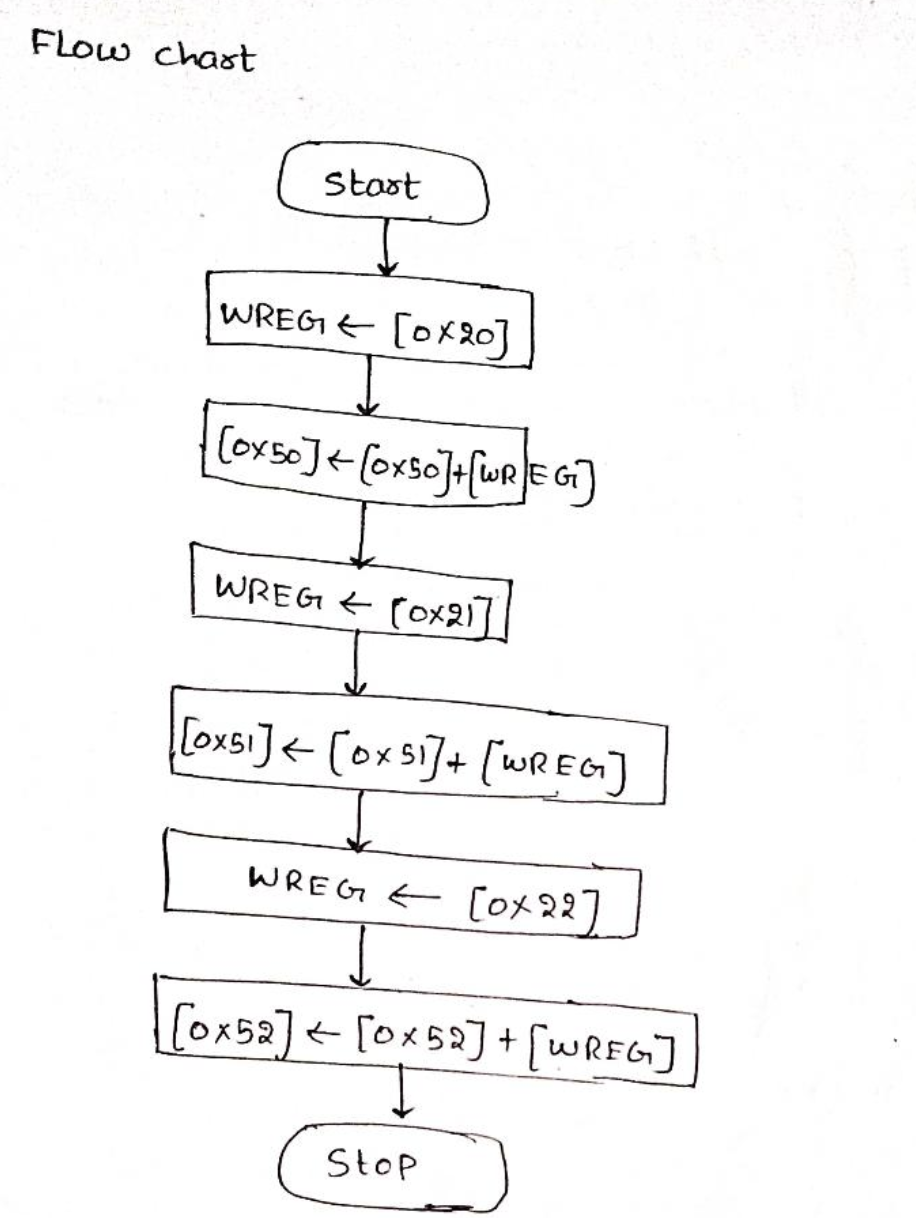 FLow chart
Start
WREG ← [0x20]
[0x50] ← [0x50]+[WREG]
WREG ← [0x21]
[0x51] ← [0x51]+ [WREG]
WREG ← [0x22]
[0x52] ← [0x52] + [WREG]
Stop